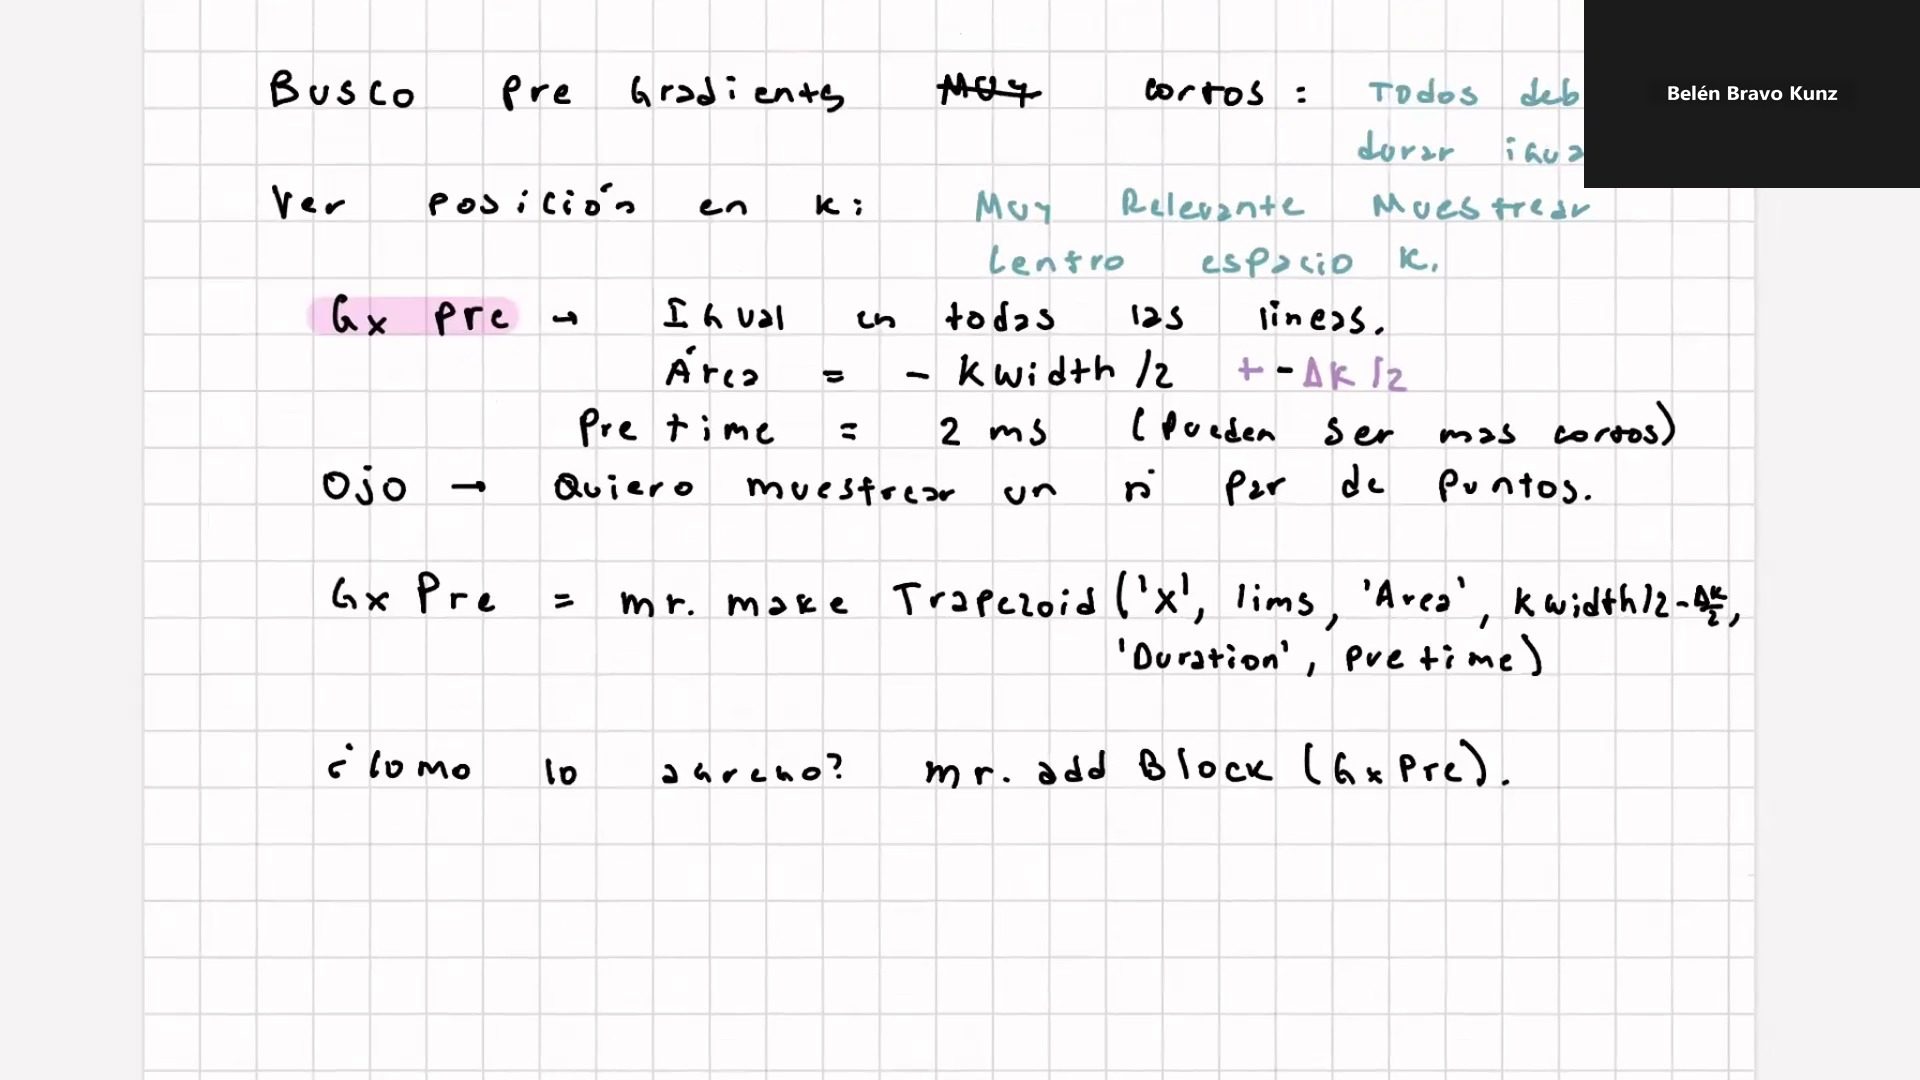 Busco Pre Gradients Muy cortos : Todos deb
durar igua
Ver posición en k: Muy Relevante Muestrear
Centro espacio k.
Gx Pre → Igual en todas las lineas.
Área = - kwidth /2 + - Δk /2
Pre time = 2 ms (pueden ser mas cortos)
Ojo → Quiero muestrear un n° par de puntos.
Gx Pre = mr. make Trapezoid ('x', lims, 'Area', kwidth/2 - Δk/2,
'Duration', pre time)
¿Como lo agrego? mr. add Block (Gx Pre).
Belén Bravo Kunz